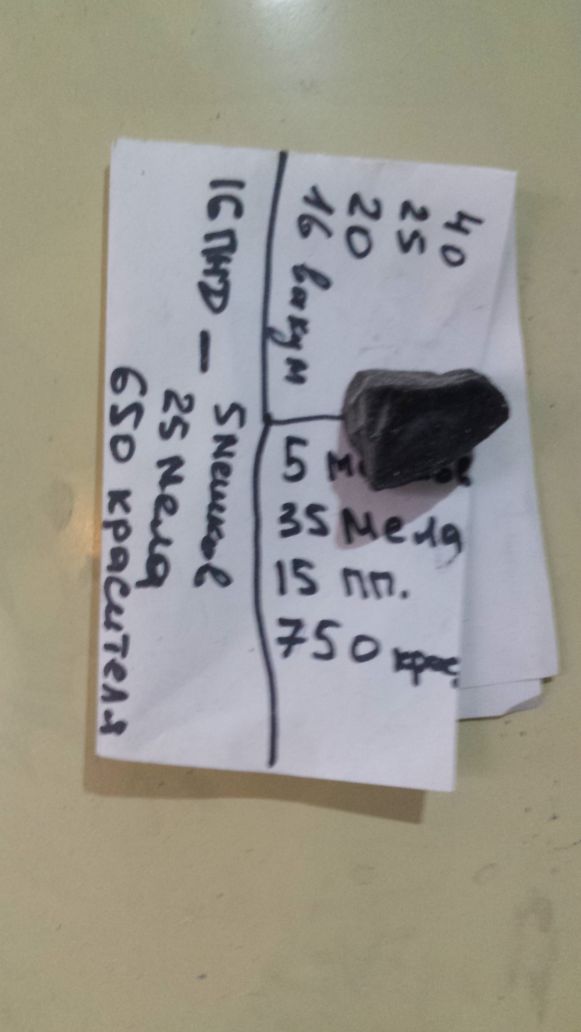 40
25
20
16 вакум
5
35 мела
15 пп.
750 крас.
16 ПНД – 5 мешков
25 мела
650 красителя